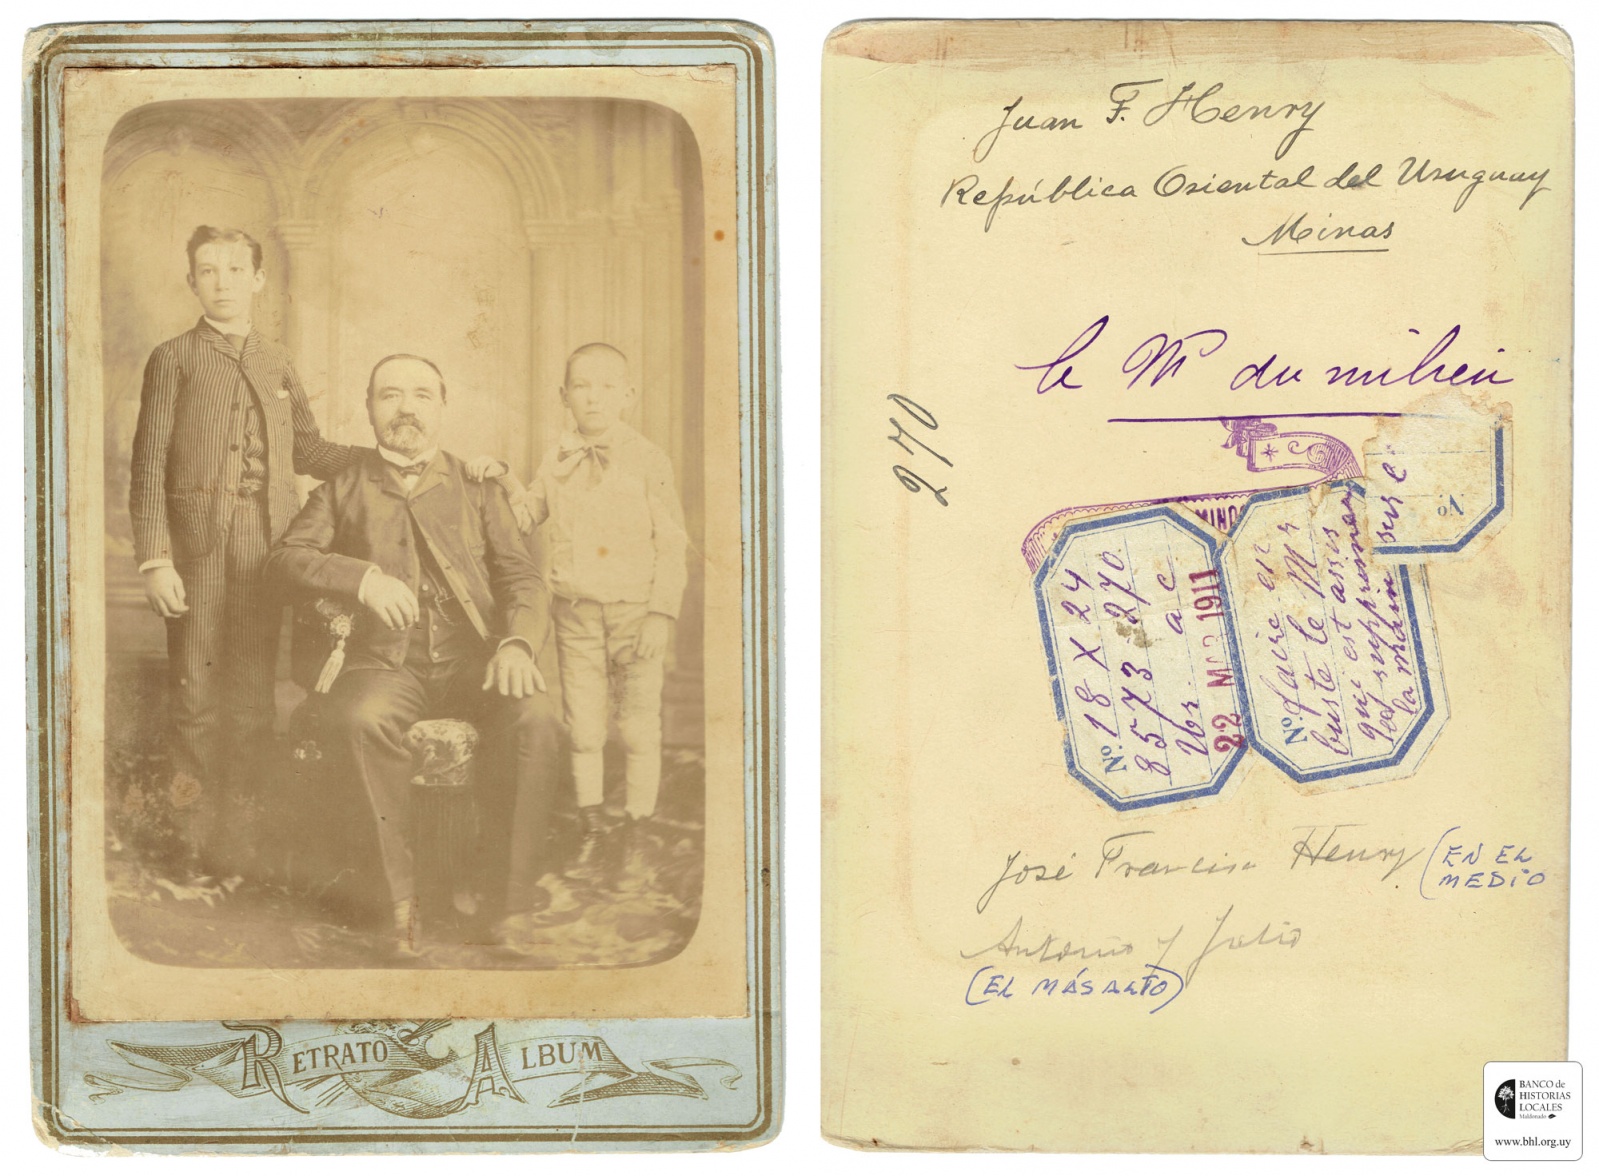 RETRATO ALBUM
Juan F. Henry
República Oriental del Uruguay
Minas
le Mr du milieu
270
No. 18 X 24
8573-270.
22 MAR 1911
No. faire en
buste le Mr
qui est assis
et supprimer
la main sur l
No
José Francisco Henry (EN EL
MEDIO
Antonio y Julio
(EL MÁS ALTO)
BANCO de
HISTORIAS
LOCALES
Maldonado
www.bhl.org.uy